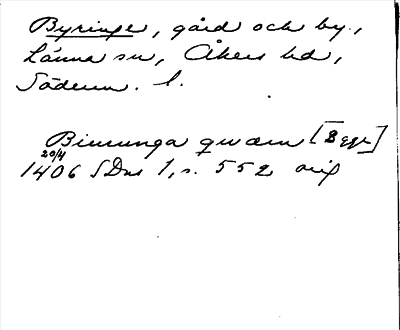 Byringe, gård och by.,
Länna sn, Åkers hd,
Söderm. l.
Biurunga quærn [Bygn]
20/4
1406 SDns 1, s. 552 orig